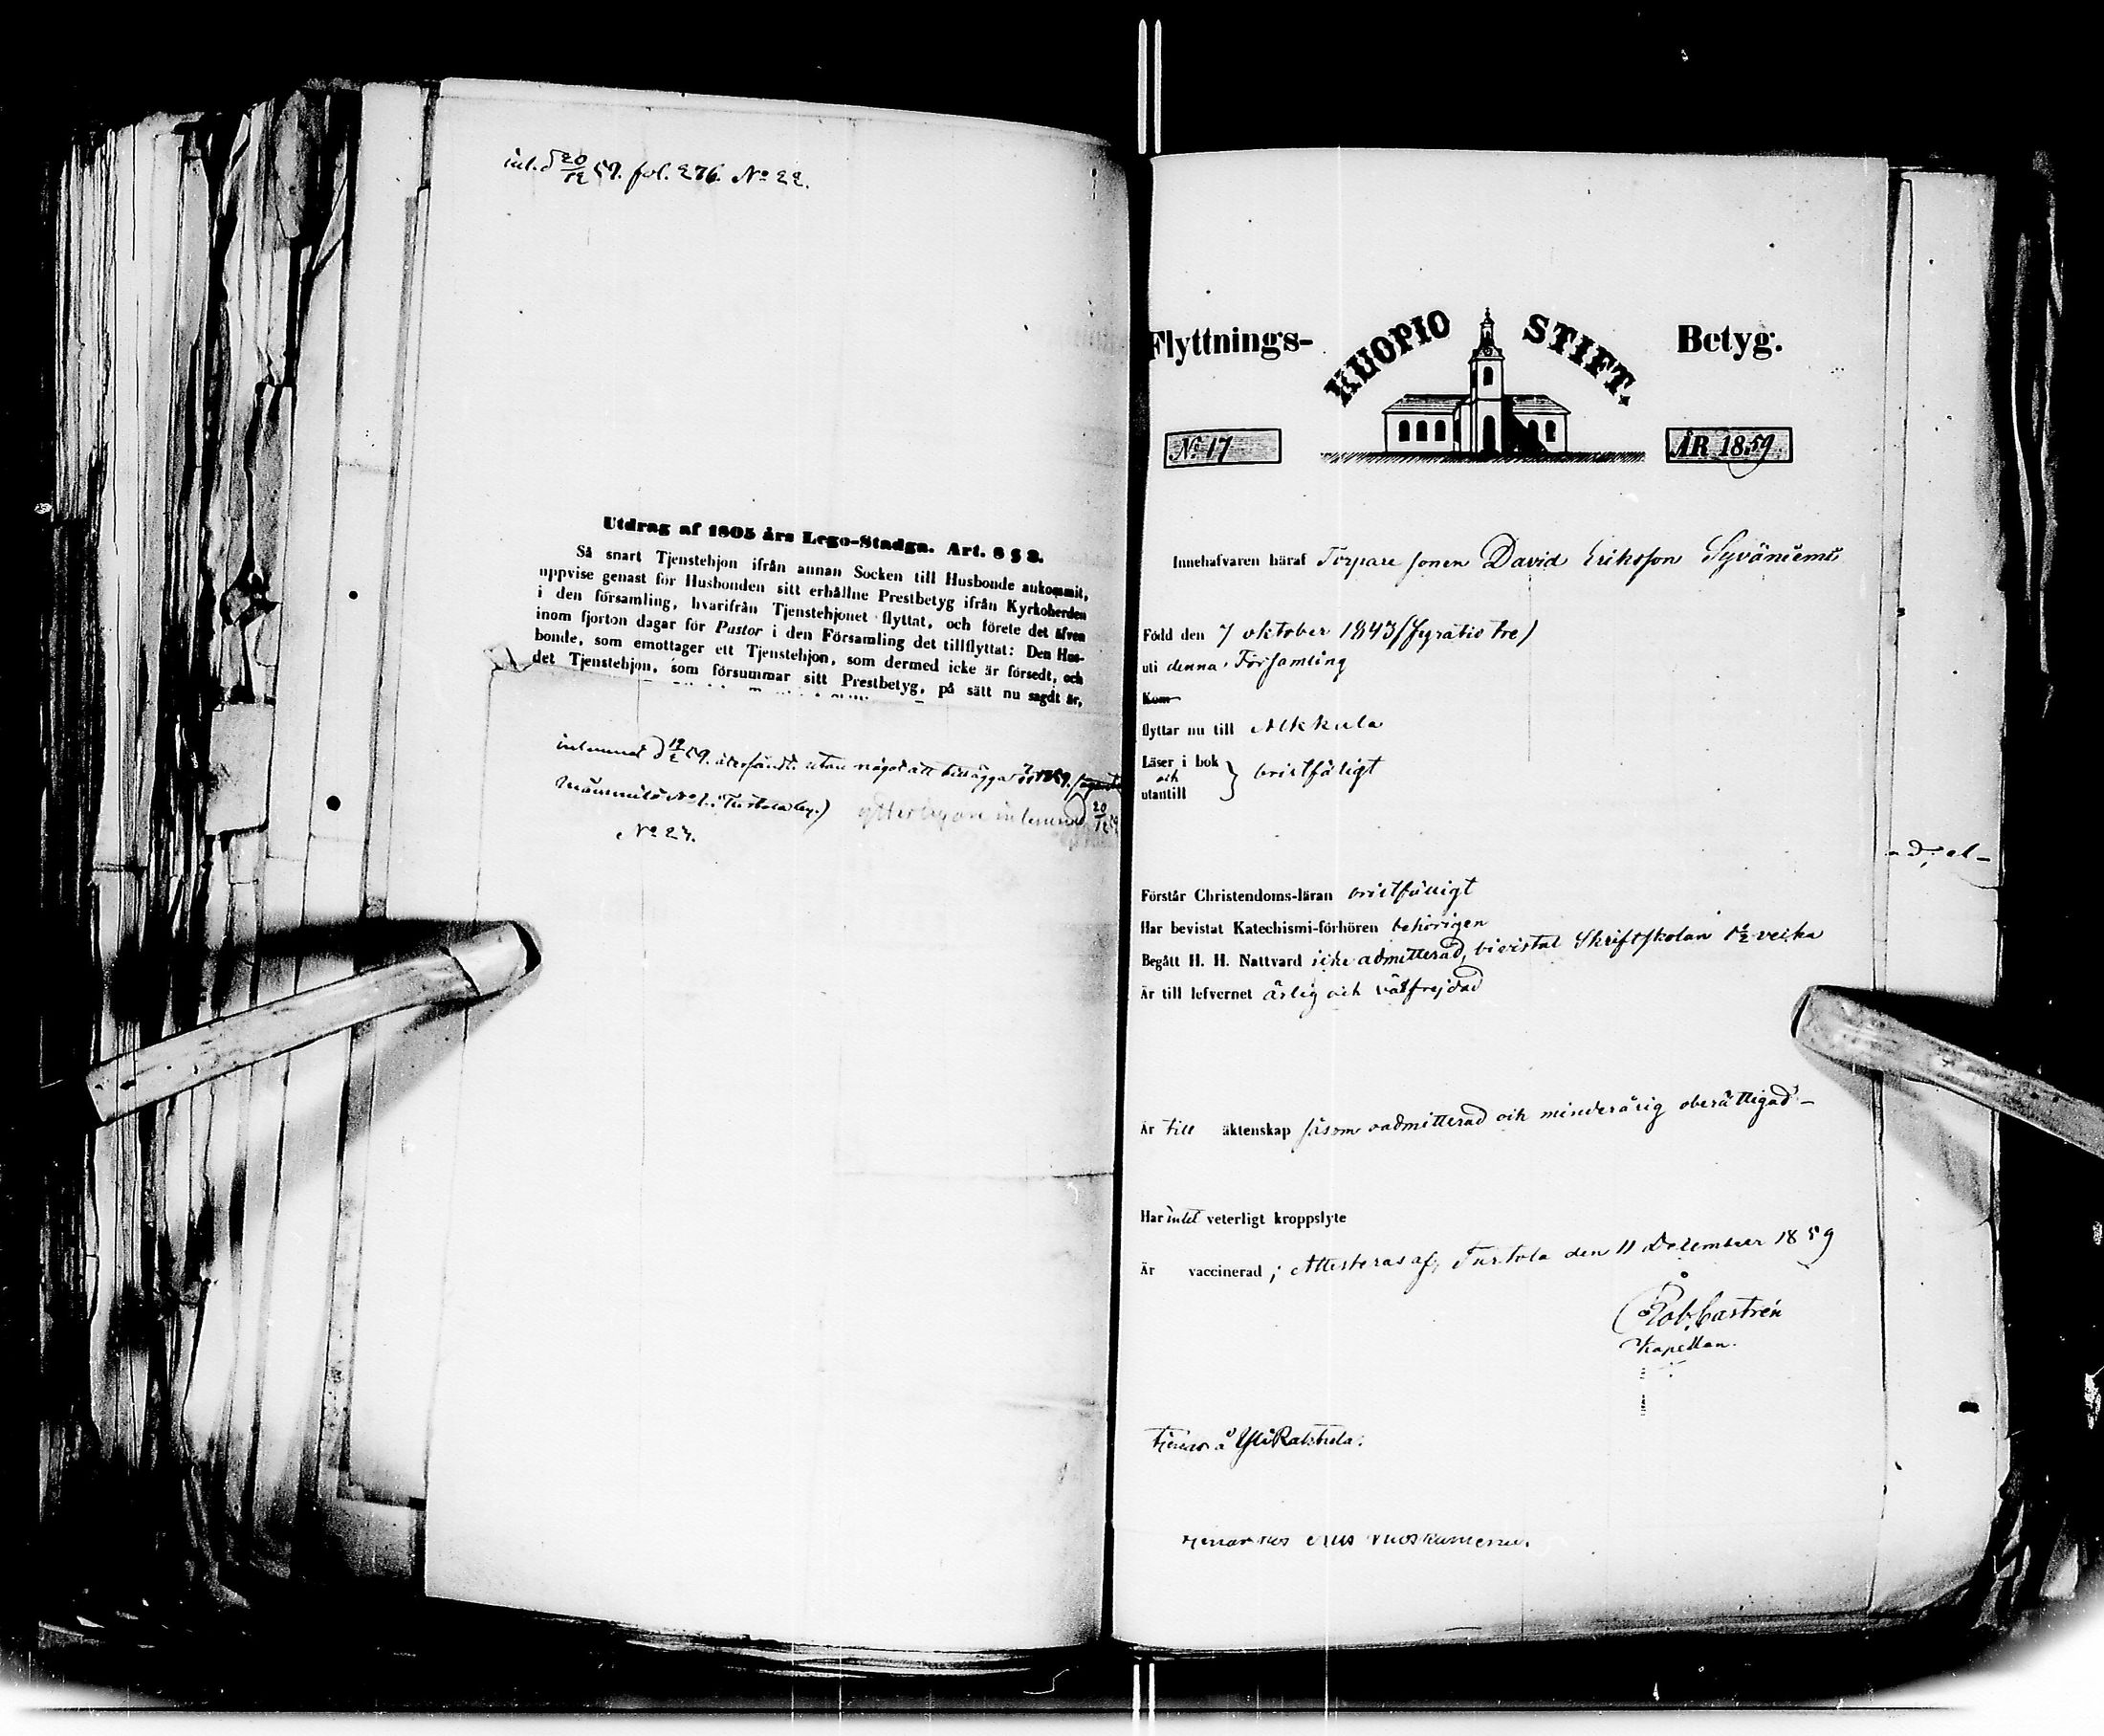 inl. d 20/12 59. fol. 276. No 22.
Utdrag af 1805 års Lego-Stadga. Art. 8 § 3.
Så snart Tjenstehjon ifrån annan Socken till Husbonde ankommit,
uppvise genast för Husbonden sitt erhållne Prestbetyg ifrån Kyrkoherden
i den församling, hvarifrån Tjenstehjonet flyttat, och förete det äfven
inom fjorton dagar för Pastor i den Församling det tillflyttat: Den Hus-
bonde, som emottager ett Tjenstehjon, som dermed icke är försedt, och
det Tjenstehjon, som försummar sitt Prestbetyg, på sätt nu sagdt är,
59. återsändt utan något att
No 27.
Flyttnings- KUOPIO STIFT. Betyg.
No 17 ÅR 1859
Innehafvaren häraf Torpare sonen David Eriksson Syväniemi
Född den 7 oktober 1843 (fyratio tre)
uti denna Församling
Kom
flyttar nu till Alkkula
Läser i bok
och
utantill } bristfäligt
Förstår Christendoms-läran bristfälligt
Har bevistat Katechismi-förhören behörigen
Begått H. H. Nattvard icke admitterad, bivistat Skriftskolan 1½ vecka
Är till lefvernet ärlig och välfrejdad
Är till äktenskap såsom oadmitterad och minderårig oberättigad -
Har intet veterligt kroppslyte
Är vaccinerad; Attesteras af, Turtola den 11 December 1859
Rob. Castrén
Kapellan.
tjenar å Yli Rakkula.
tjenar hos